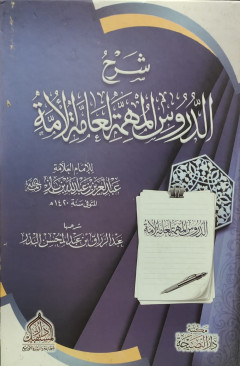 شرح
الدروس المهمة لعامة الأمة
للإمام العلامة
عبد العزيز بن عبد الله بن باز رحمه الله
المتوفى سنة ١٤٢٠هـ
شرحها
عبد الرزاق بن عبد المحسن البدر
الدروس المهمة لعامة الأمة
مكتبة
دار النصيحة